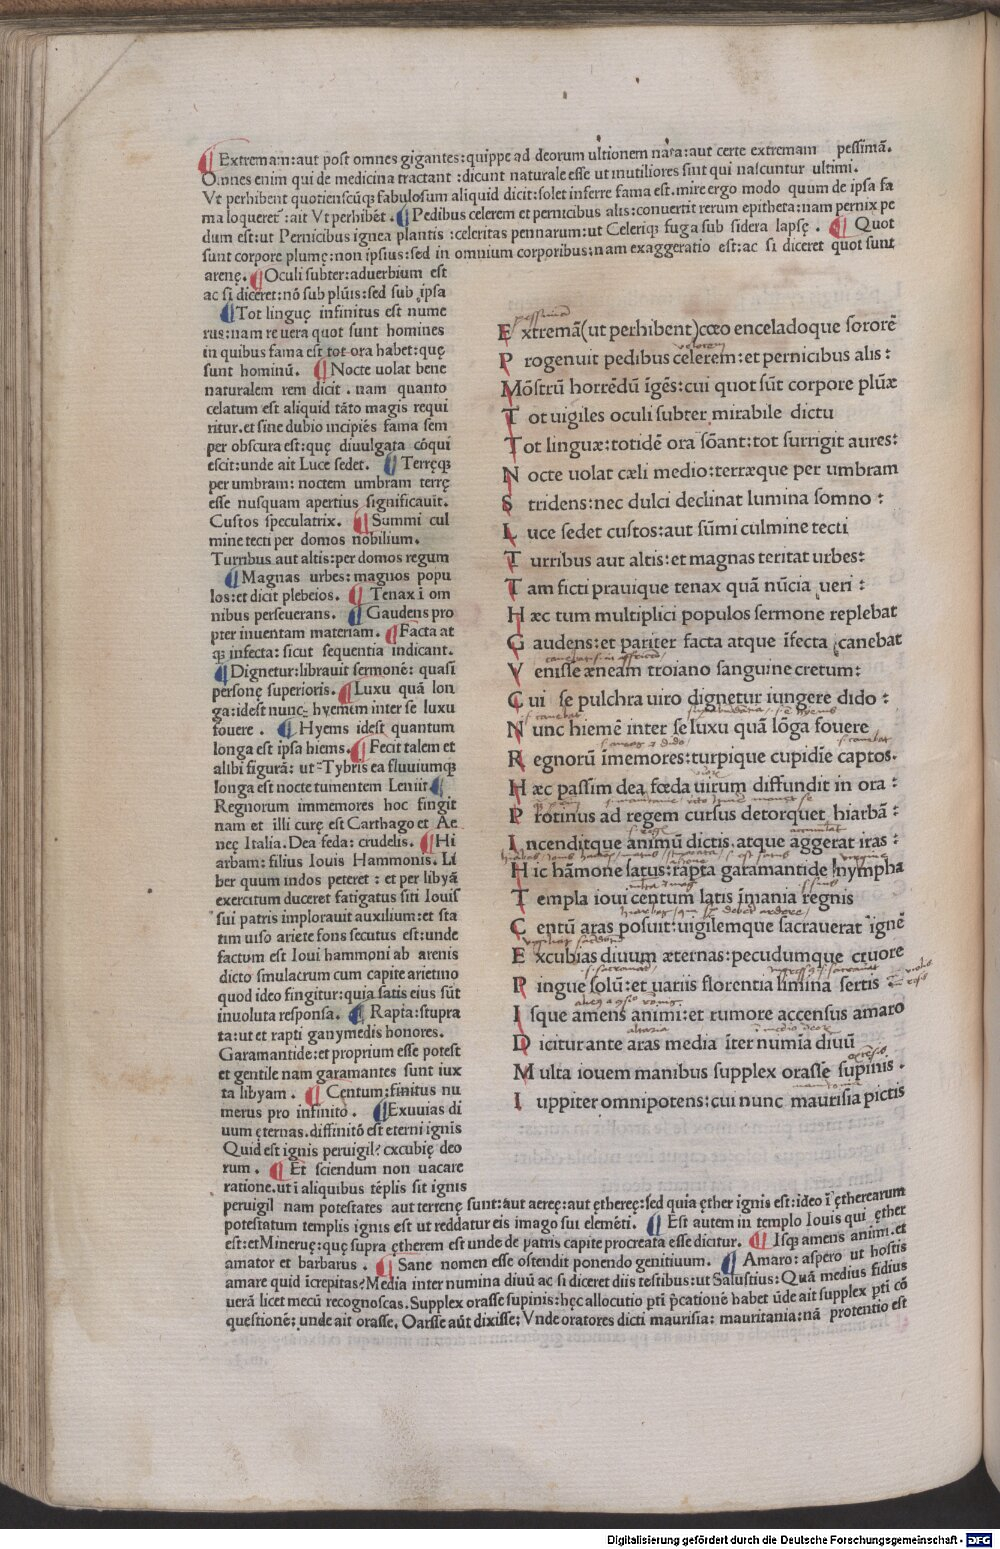 Extremam:aut post omnes gigantes:quippe ad deorum ultionem nata:aut certe extremam pessimā.
Omnes enim qui de medicina tractant :dicunt naturale esse ut inutiliores sint qui nascuntur ultimi.
Vt perhibent quotienscūq; fabulosum aliquid dicit:solet inferre fama est.mire ergo modo quum de ipsa fa
ma loqueret᷑:ait Vt perhibēt. Pedibus celerem et pernicibus alis:conuertit rerum epitheta:nam pernix pe
dum est:ut Pernicibus ignea plantis :celeritas pennarum:ut Celeriq; fuga sub sidera lapsę . Quot
sunt corpore plumę:non ipsius:sed in omnium corporibus:nam exaggeratio est:ac si diceret quot sunt
arenę. Oculi subter:aduerbium est
ac si diceret:nō sub plūis:sed sub ipsa
Tot linguę infinitus est nume
rus:nam re uera quot sunt homines
in quibus fama est tot ora habet:quę
sunt hominū. Nocte uolat bene
naturalem rem dicit . nam quanto
celatum est aliquid tāto magis requi
ritur.et sine dubio incipiēs fama sem
per obscura est:quę diuulgata cōqui
escit:unde ait Luce sedet. Terręq;
per umbram: noctem umbram terrę
esse nusquam apertius significauit.
Custos speculatrix. Summi cul
mine tecti per domos nobilium.
Turribus aut altis:per domos regum
Magnas urbes:magnos popu
los:et dicit plebeios. Tenax ī om
nibus perseuerans. Gaudens pro
pter inuentam materiam. Facta at
q; infecta: sicut sequentia indicant.
Dignetur:librauit sermonē: quasi
personę superioris. Luxu quā lon
ga:idest nunc hyemem inter se luxu
fouere . Hyems idest quantum
longa est ipsa hiems. Fecit talem et
alibi figurā: ut Tybris ea fluuiumq;
longa est nocte tumentem Leniit
Regnorum immemores hoc fingit
nam et illi curę est Carthago et Ae
neę Italia.Dea feda: crudelis. Hi
arbam:filius Iouis Hammonis. Li
ber quum indos peteret : et per libyā
exercitum duceret fatigatus siti Iouis
sui patris implorauit auxilium:et sta
tim uiso ariete fons secutus est:unde
factum est Ioui hammoni ab arenis
dicto smulacrum cum capite arietino
quod ideo fingitur:quia satis eius sūt
inuoluta responsa. Rapta:stupra
ta:ut et rapti ganymedis honores.
Garamantide:et proprium esse potest
et gentile nam garamantes sunt iux
ta libyam . Centum:finitus nu
merus pro infinito . Exuuias di
uum ęternas.diffinitō est eterni ignis
Quid est ignis peruigil? excubię deo
rum . Et sciendum non uacare
ratione.ut ī aliquibus tēplis sit ignis
peruigil nam potestates aut terrenę sunt:aut aereę:aut ęthereę:sed quia ęther ignis est:ideo ī ęthereaarum
potestatum templis ignis est ut reddatur eis imago sui elemēti. Est autem in templo Iouis qui ęther
est:et Mineruę:quę supra ętherem est unde de patris capite procreata esse dicitur. Isq; amens animi.et
amator et barbarus . Sane nomen esse ostendit ponendo genitiuum. Amaro: aspero ut hostis
amare quid īcrepitas?Media inter numina diuū ac si diceret diis testibus:ut Salustius: Quā medius fidius
uerā licet mecū recognoscas.Supplex orasse supinis:hęc allocutio pti p̄catione habet ūde ait supplex pti cō
questionē: unde ait orasse. Oarsse aūt dixisse: Vnde oratores dicti maurisia: mauritania:nā protentio est
pessimā
Extremā(ut perhibent)cœo enceladoque sororē
uelocem
Progenuit pedibus celerem:et pernicibus alis:
Mōstrū horrēdū īgēs:cui quot sūt corpore plūæ
Tot uigiles oculi subter mirabile dictu
Tot linguæ:totidē ora sōant:tot surrigit aures:
Nocte uolat cæli medio:terræque per umbram
Stridens:nec dulci declinat lumina somno :
Luce sedet custos:aut sūmi culmine tecti
Turribus aut altis:et magnas teritat urbes:
Tam ficti prauique tenax quā nūcia ueri :
Hæc tum multiplici populos sermone replebat
Gaudens:et pariter facta atque īfecta canebat
Venisse æneam troiano sanguine cretum:
Cui se pulchra uiro dignetur iungere dido :
s. canebat
Nunc hiemē inter se luxu quā lōga fouere
s. canebat
Regnorū īmemores:turpique cupidīe captos.
Hæc passim dea fœda uirum diffundit in ora :
Protinus ad regem cursus detorquet hiarbā :
accumulat
Incenditque animū dictis atque aggerat iras :
Hic hāmone satus:rapta garamantide nympha
Templa ioui centum latis īmania regnis
Centū aras posuit:uigilemque sacrauerat ignē
Excubias diuum æternas:pecudumque cruore
Pingue solū:et uariis florentia limina sertis
Isque amens animi:et rumore accensus amaro
altaria
Dicitur ante aras media īter numīa diuū
Multa iouem manibus supplex orasse supinis.
Iuppiter omnipotens:cui nunc maurisia pictis
Digitalisierung gefördert durch die Deutsche Forschungsgemeinschaft - DFG